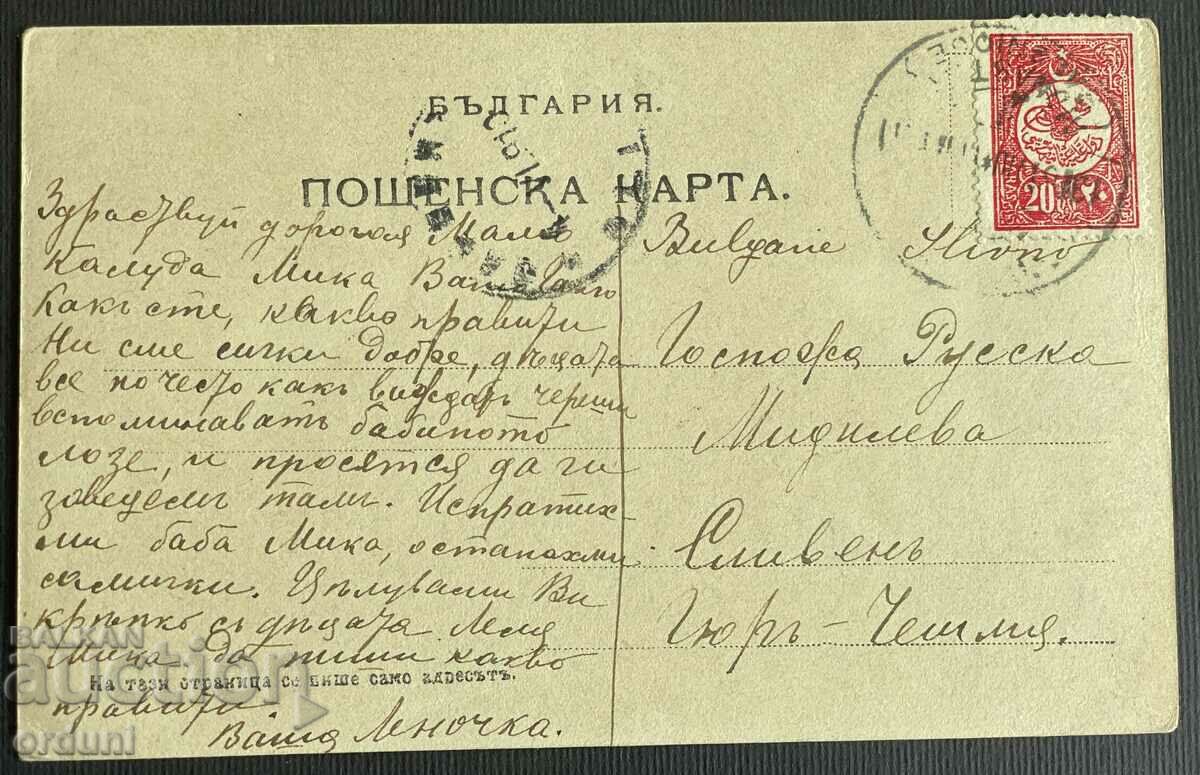 БЪЛГАРИЯ.
ПОЩЕНСКА КАРТА.
Здраствуй дорогая Мамо
Калуда Мика Ваша
Какъ сте, какво правити
Ни сме сички добре, дѣцата
все по често какъ виждат череши
вспоминаватъ бабиното
лозе, и просятся да ги
заведемъ тамъ. Испратих-
ми баба Мика, останахми
самички. Цѣлувами Ви
крѣпко съ дѣцата Леля
Мика да пиши какво
На тази страница се пише само адресътъ.
правити.
Ваша Леночка.
Bulgarie Slivno
Госпожа Русска
Мидилева
Сливенъ
Гюръ-Чешмя.
20 ٢٠
1912
BALKAN
auction
orduni